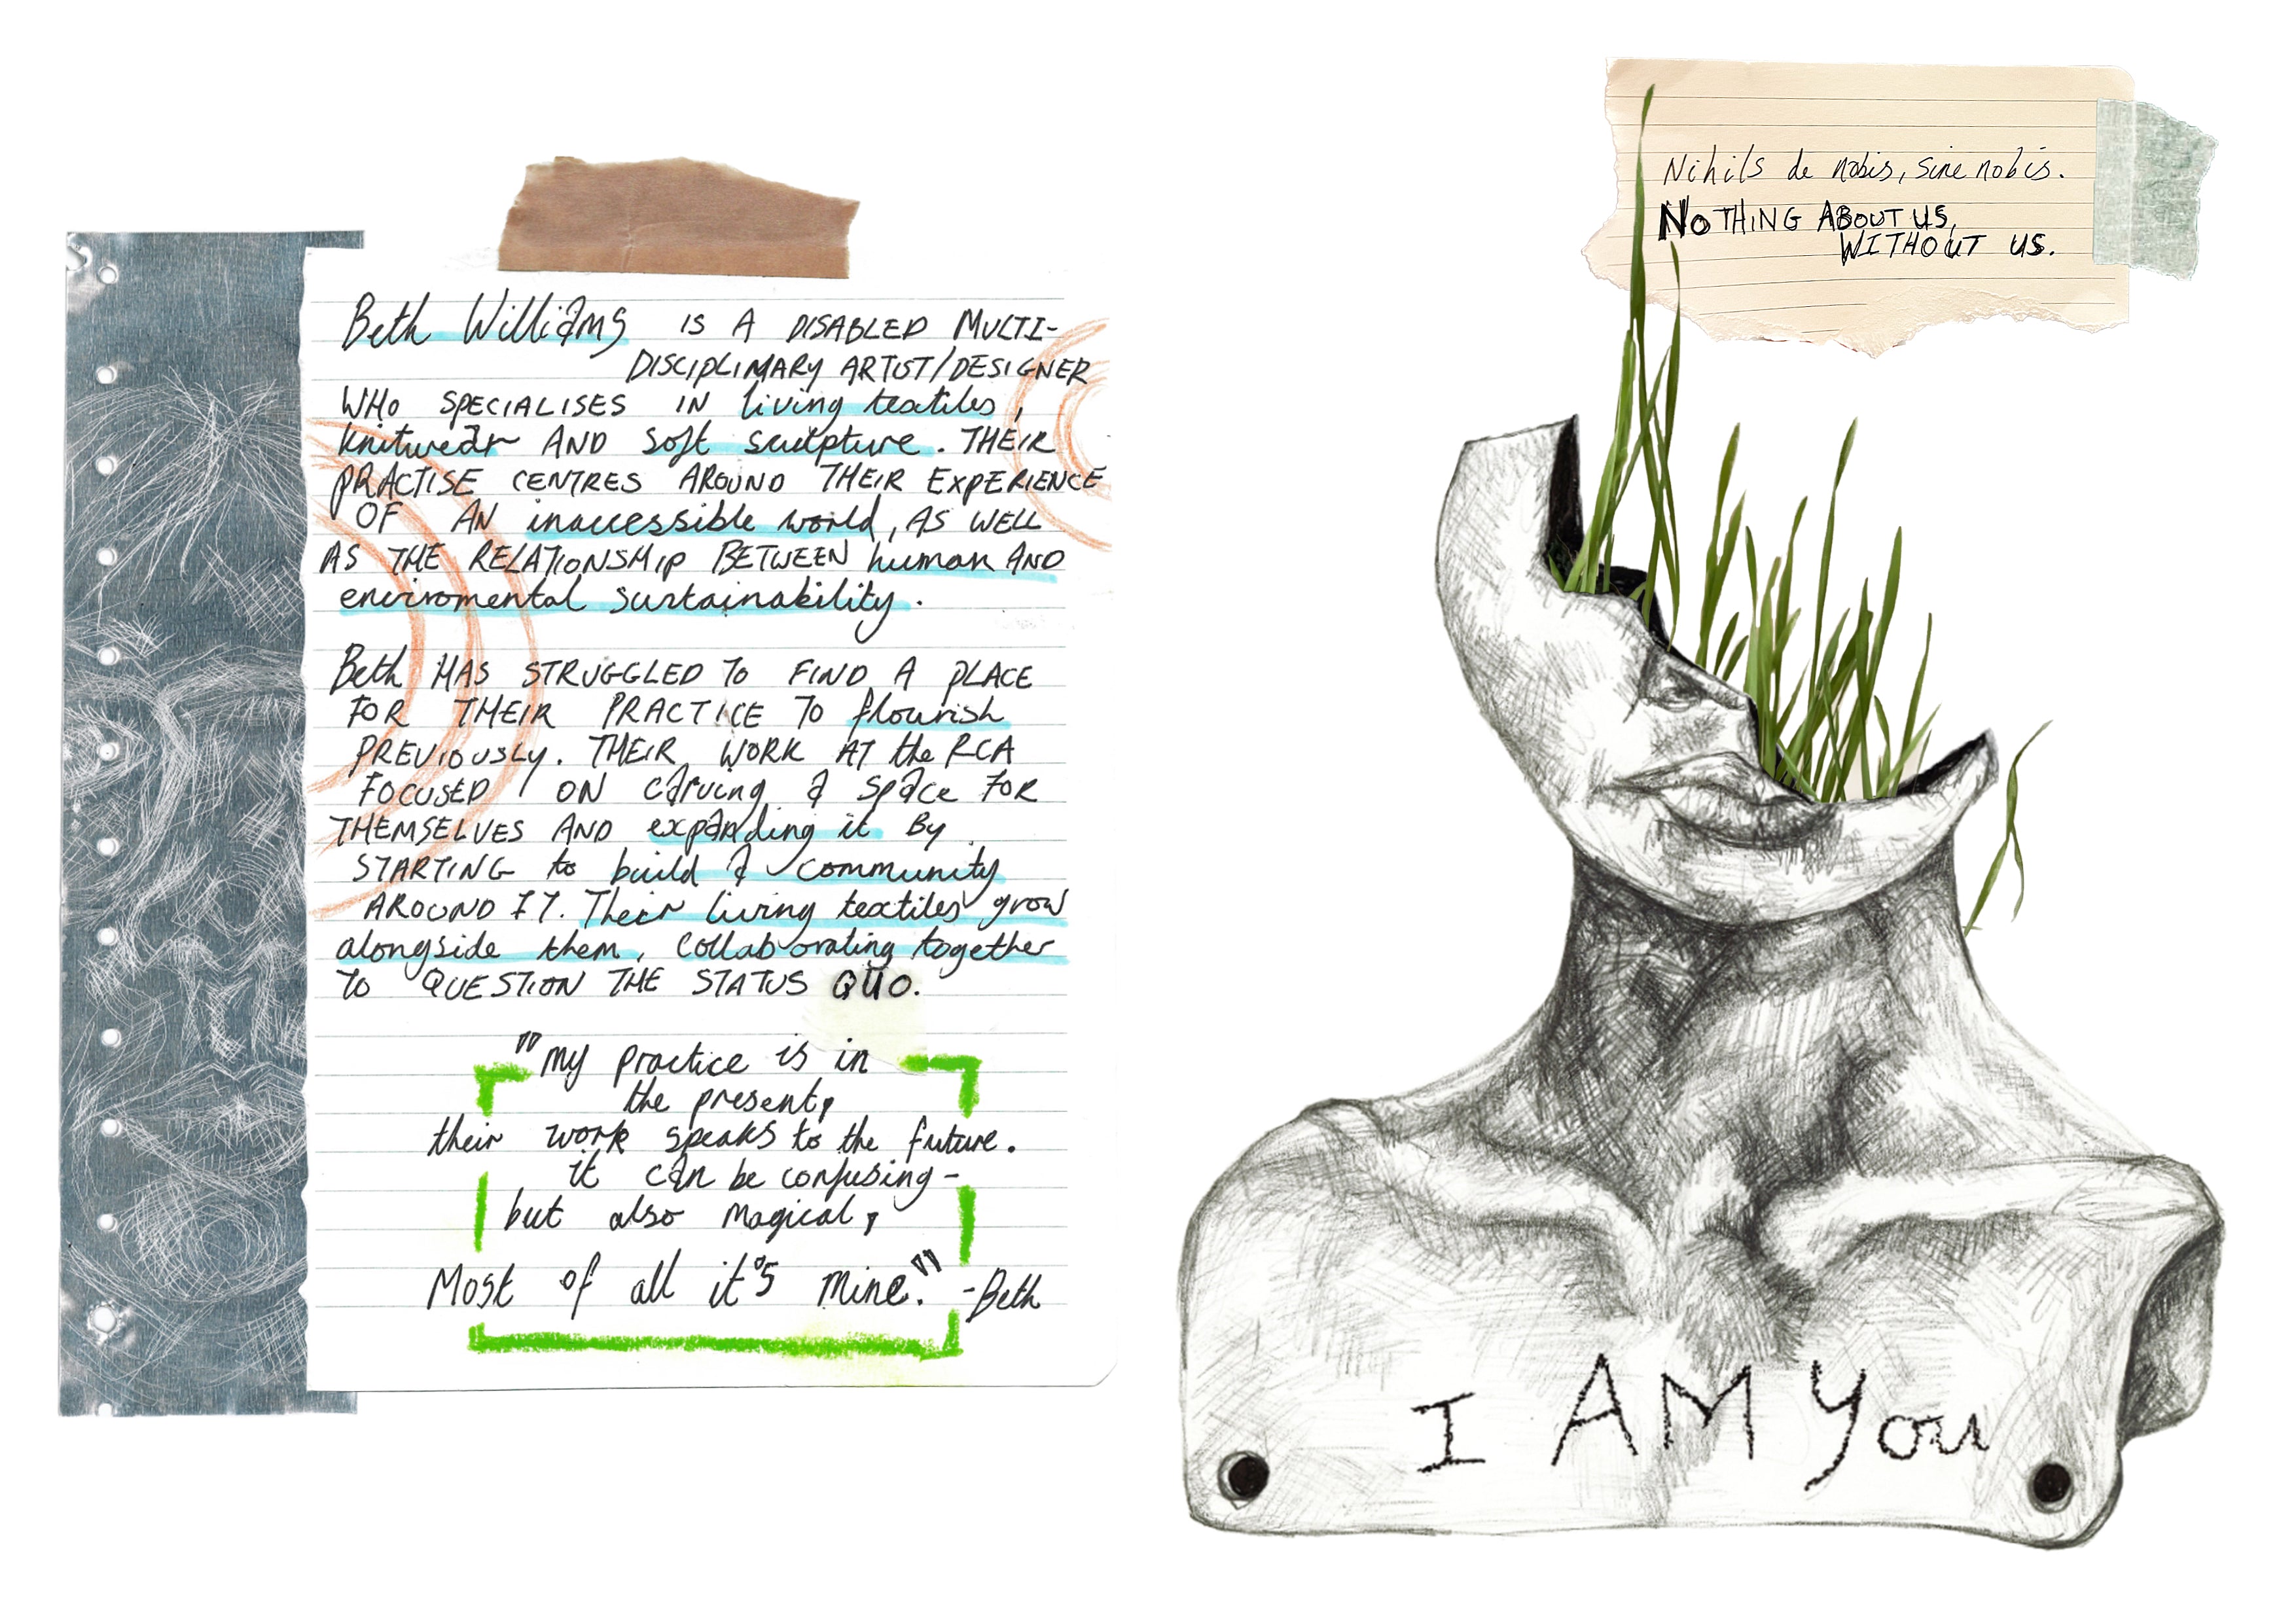 Beth Williams IS A DISABLED MULTI-
DISCIPLINARY ARTIST/DESIGNER
WHO SPECIALISES IN living textiles,
knitwear AND soft sculpture. THEIR
PRACTISE CENTRES AROUND THEIR EXPERIENCE
OF AN inaccessible world, AS WELL
AS THE RELATIONSHIP BETWEEN human AND
enviromental sustainability.
Beth HAS STRUGGLED TO FIND A PLACE
FOR THEIR PRACTICE TO flourish
PREVIOUSLY. THEIR WORK AT the RCA
FOCUSED ON carving a space FOR
THEMSELVES AND expanding it By
STARTING to build a community
AROUND IT. Their living textiles grow
alongside them, collaborating together
TO QUESTION THE STATUS QUO.
"my practice is in
the present,
their work speaks to the future.
it can be confusing-
but also magical,
Most of all it's mine." -Beth
Nihils de nobis, sine nobis.
NOTHING ABOUT US,
WITHOUT US.
I AM You